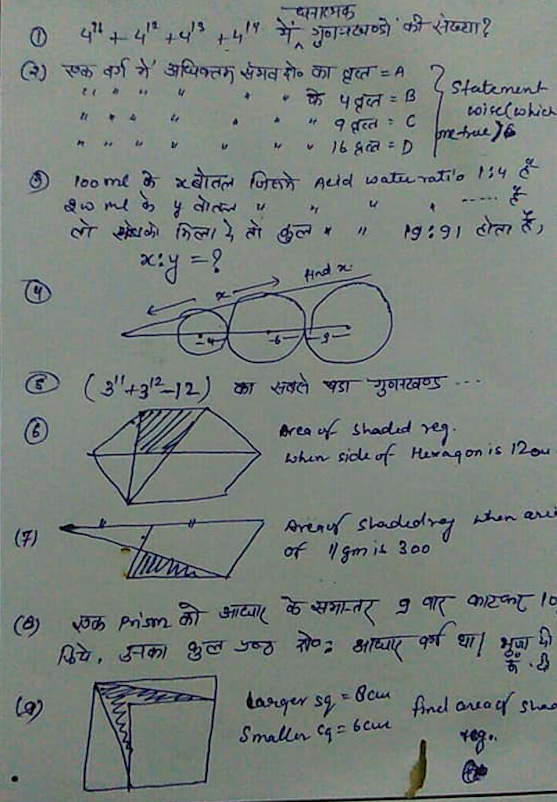 धनात्मक
① 4¹¹ + 4¹² + 4¹³ + 4¹⁴ में, गुणनखण्डों की संख्या?
(२) एक वर्ग में अधिकतम संभव क्षे० का वृत्त = A
" " " " " " के 4 वृत्त = B
" " " " " " 9 वृत्त = C
" " " " " " 16 वृत्त = D
Statement wise (which
③ 100 ml के x बोतल जिसमें Acid water ratio 1:4 है
ml के y बोतल " " " " ..... है
तो सबको मिला दें तो कुल " " 19:91 होता है,
x:y = ?
④ find x
x
4 6 9
⑤ (3¹¹+3¹²-12) का सबसे बड़ा गुणनखण्ड ...
⑥ Area of shaded reg.
when side of Hexagon is 12
(7) Area of shaded reg when
of ||gm is 300
(8) एक Prism को आधार के समान्तर 9 बार काटकर 10
किये, उनका कुल पृष्ठ क्षे० = आधार वर्ग था। भुजा
(9) Larger sq = 8cm find area of
Smaller sq = 6cm reg..